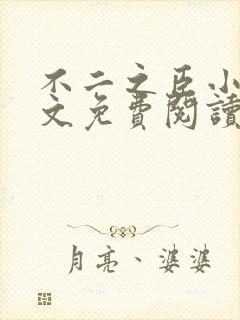 不二之臣小
文免費閱讀
月亮、婆婆